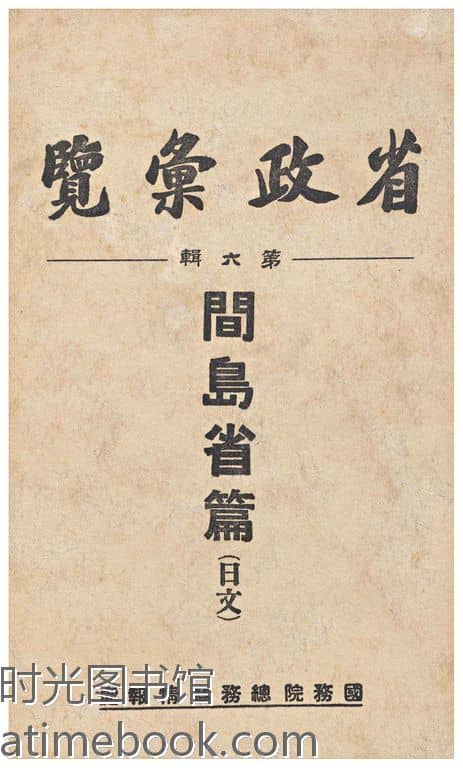 省政彙覽
第六輯
間島省篇(日文)
國務院總務
情報
时光图书馆
atimebook.com